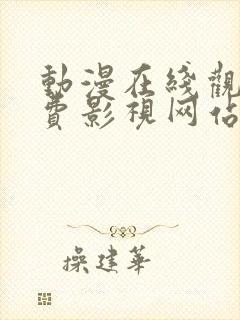 動漫在綫觀
費影視网佔
操建華